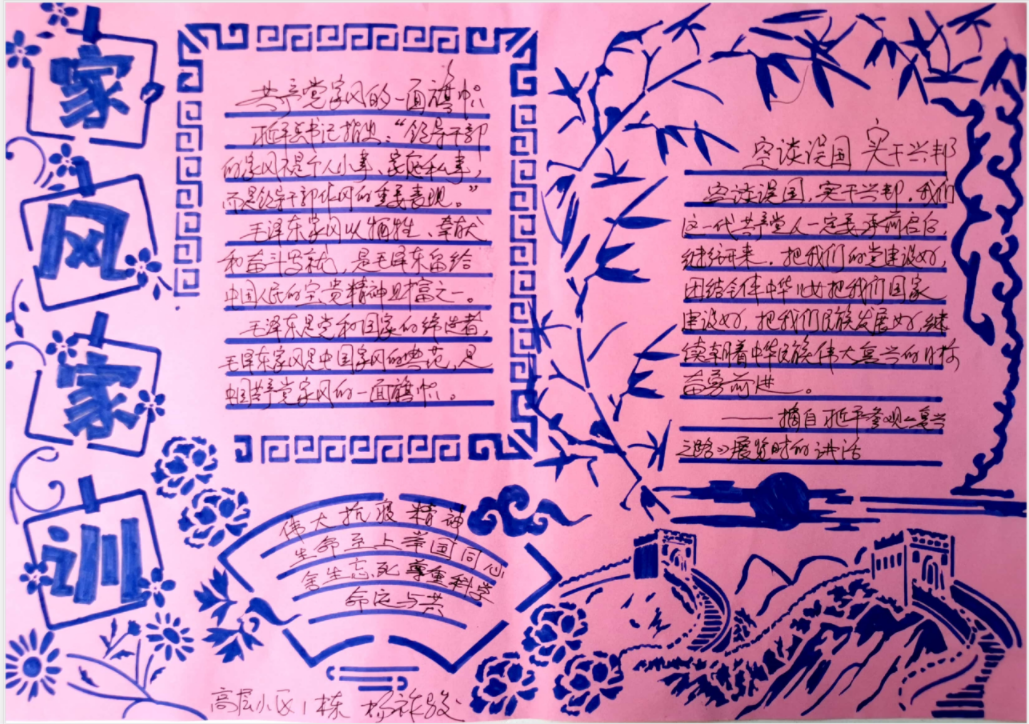 家
风
家
训
共产党家风的一面旗帜
近平总书记指出:“领导干部
的家风不是个人小事、家庭私事,
而是领导干部作风的重要表现。”
毛泽东家风以牺牲、奉献
和奋斗出就,是毛泽东留给
中国人民的宝贵精神财富之一。
毛泽东是党和国家的缔造者,
毛泽东家风是中国家风的典范,是
中国共产党家风的一面旗帜。
空谈误国 实干兴邦
空谈误国,实干兴邦,我们
这一代共产党人一定要承前启后,
继往开来、把我们的党建设好,
团结全体中华儿女把我们国家
建设好,把我们民族发展好,继
续朝着中华民族伟大复兴的目标
奋勇前进。
——摘自近平参观《复兴
之路》展览时的讲话
伟大抗疫精神
生命至上举国同心
舍生忘死尊重科学
命运与共
高层小区1栋 杨